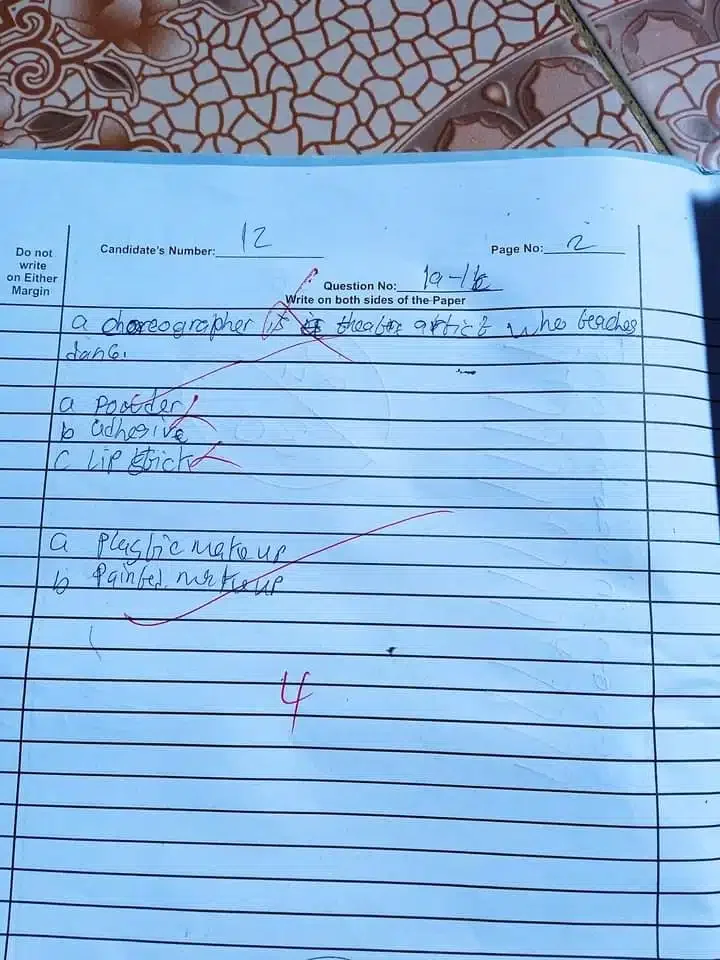 Do not
write
on Either
Margin
Candidate's Number: 12
Page No: 2
Question No: 1a-1b
Write on both sides of the Paper
a choreographer is theatre artist who teaches
danc.
a Poouder
b adhesive
c Lip stick
a Plastic make up
b Painted make up
4